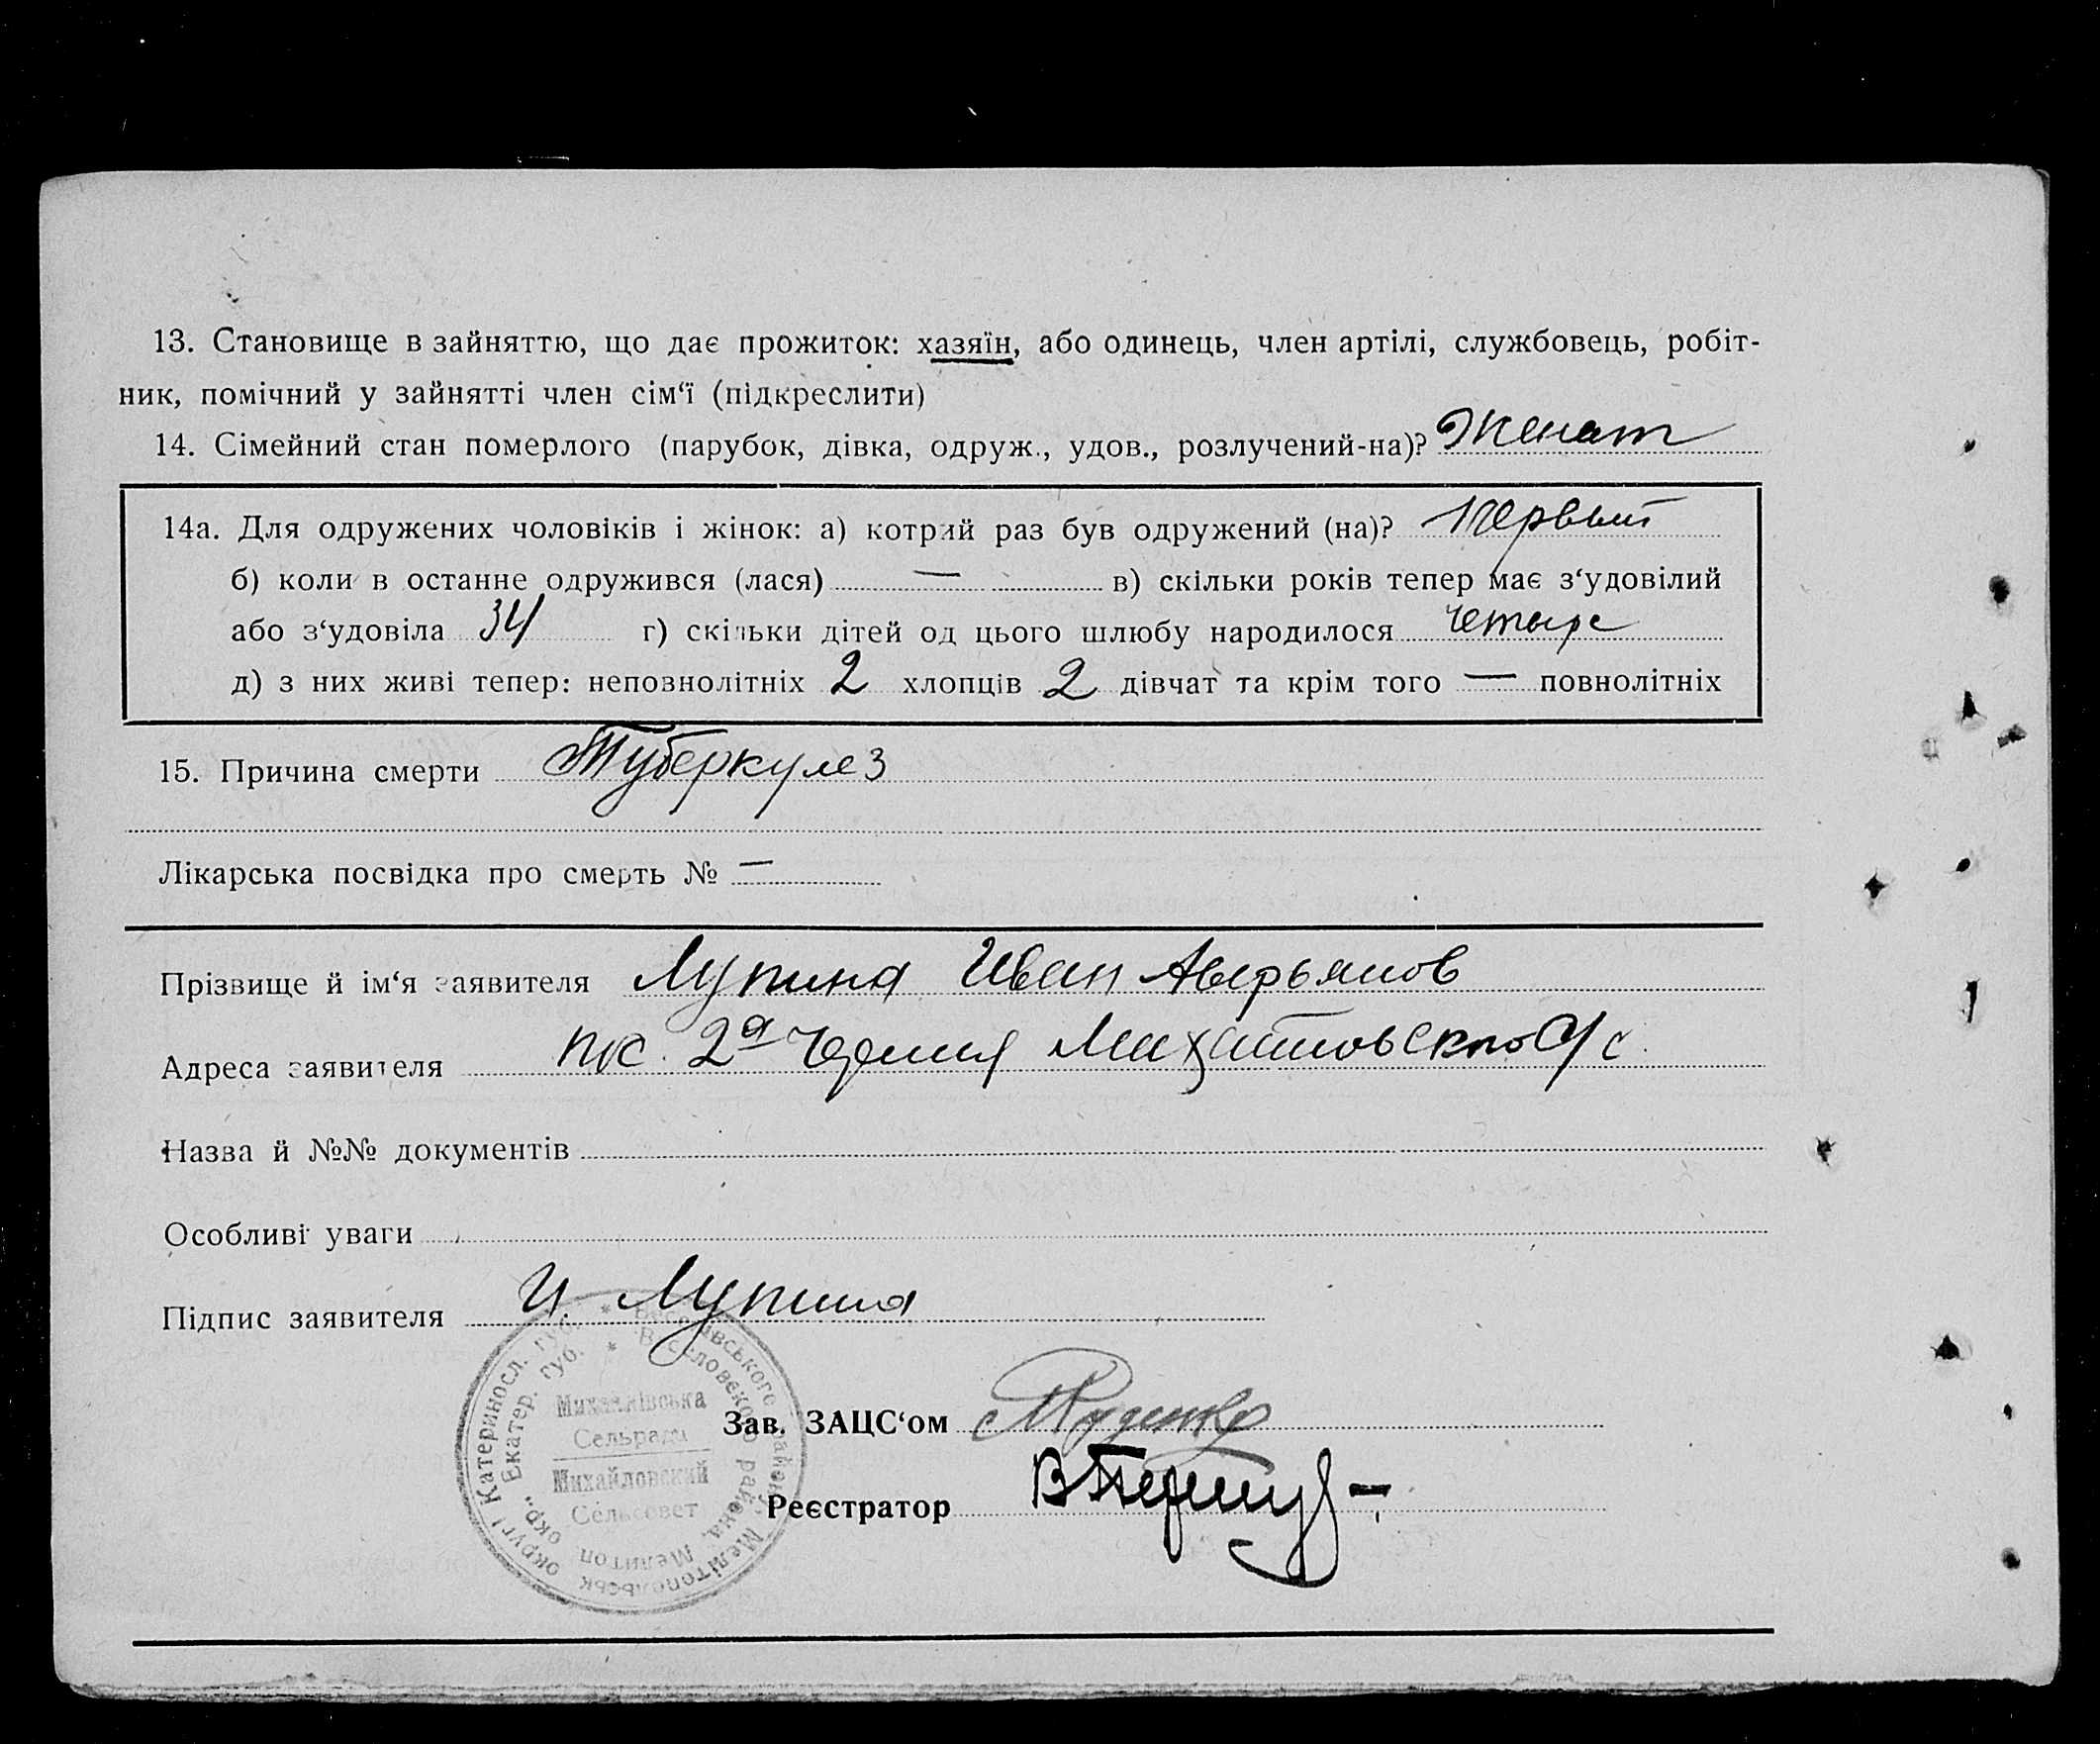 13. Становище в зайняттю, що дає прожиток: хазяїн, або одинець, член артілі, службовець, робіт-
ник, помічний у зайнятті член сім‘ї (підкреслити)
14. Сімейний стан померлого (парубок, дівка, одруж., удов., розлучений-на)? Женат
14а. Для одружених чоловіків і жінок: а) котрий раз був одружений (на)? первый
б) коли в останне одружився (лася) — в) скільки років тепер має з‘удовілий
або з‘удовіла 34 г) скільки дітей од цього шлюбу народилося четыре
д) з них живі тепер: неповнолітніх 2 хлопців 2 дівчат та крім того — повнолітніх
15. Причина смерти Туберкулез
Лікарська посвідка про смерть № —
Прізвище й ім‘я заявителя Лупина Иван Аверьянов
Адреса заявителя пос. 2ª Михайловского с/с.
Назва й №№ документів
Особливі уваги
Підпис заявителя И. Лупина
Катериносл. губ. * Веселівського району Мелітопольськ округи
Екатер. губ. * Веселовского района, Мелитоп. окр.,
Михайлівська
Сельрада
Михайловский
Сельсовет
Зав. ЗАЦС‘ом Руденко
Реєстратор